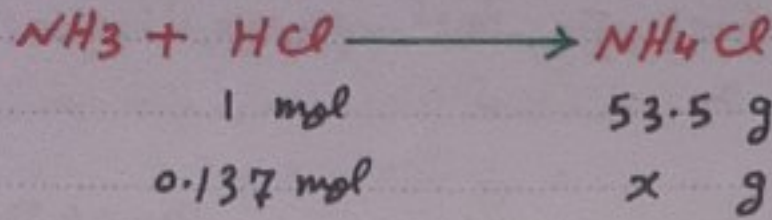 NH3 + HCl ⟶ NH4 Cl
1 mol 53.5 g
0.137 mol x g